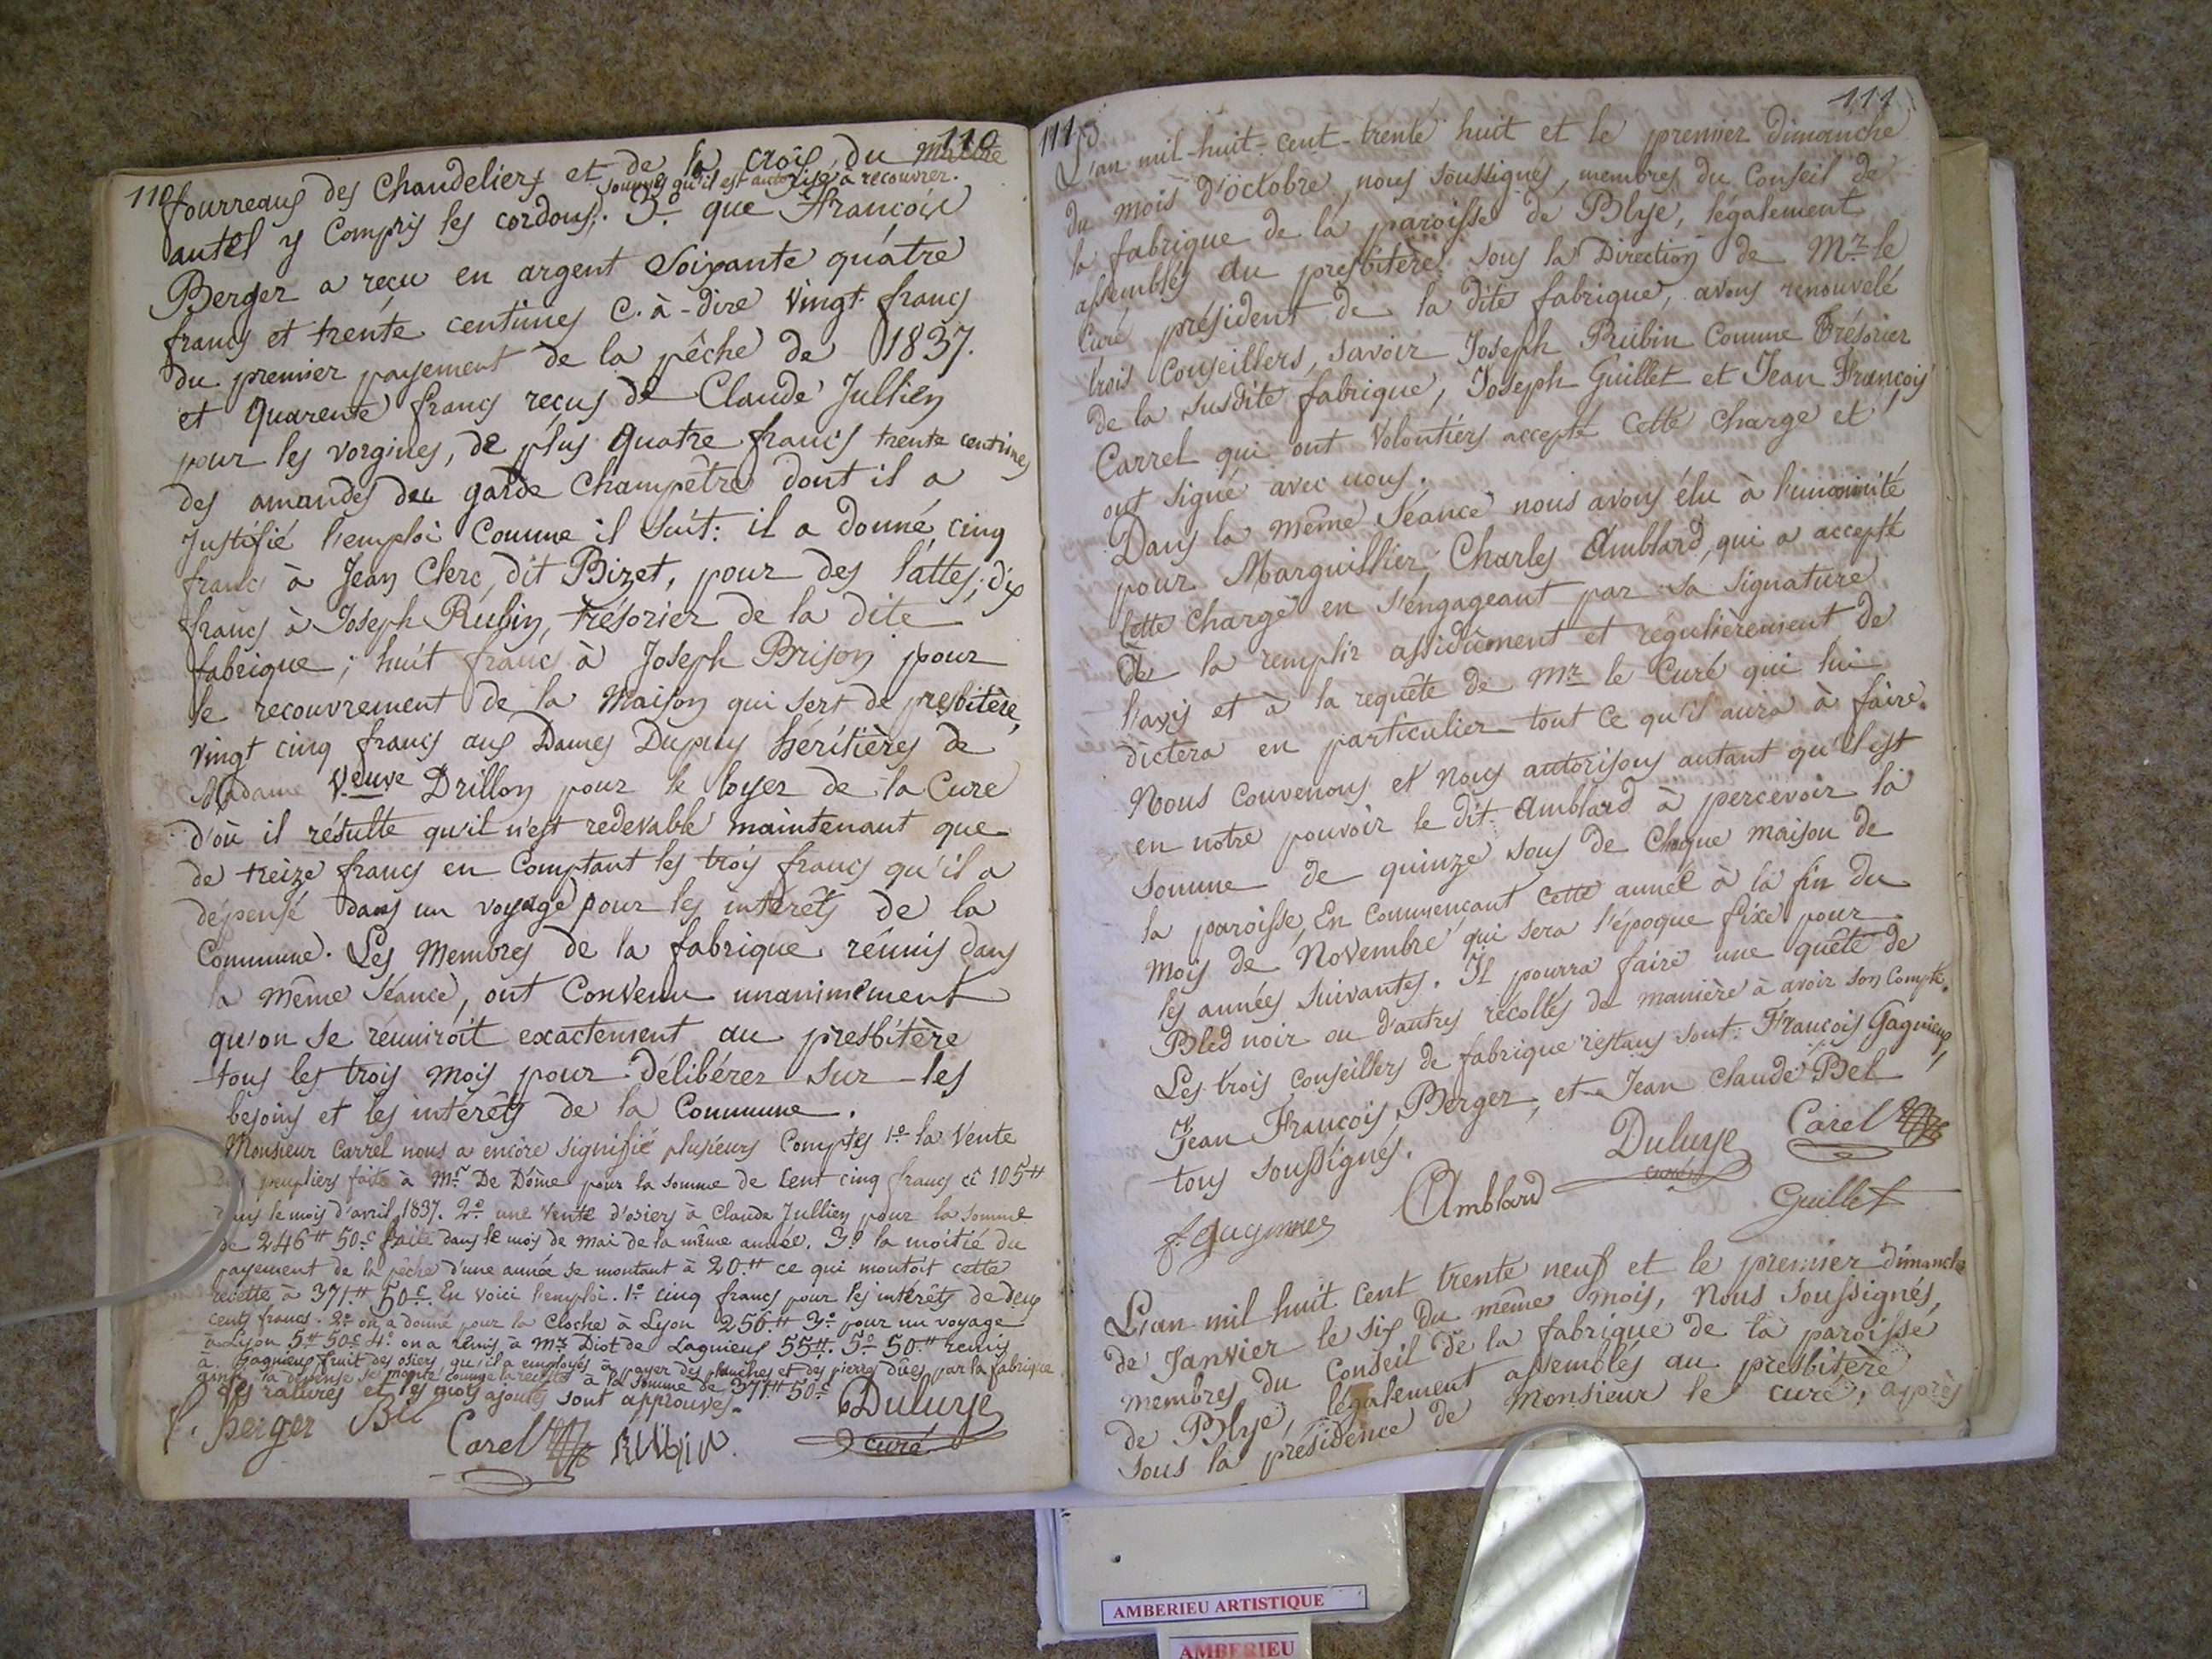 110
110
fourreaux des Chandeliers et de la croix du maitre
sommes qu'il est autorisé à recouvrer.
autel y Compris les cordons. 3º que François
Berger a reçu en argent Soixante quatre
francs et trente centimes C. à-dire vingt francs
du premier payement de la pêche de 1837.
et Quarente francs reçus de Claude Jullien
pour les vorgines, de plus Quatre francs trente centimes
des amandes du garde Champêtre dont il a
Justifié l'emploi Comme il suit: il a donné cinq
francs à Jean Clerc, dit Bizet, pour des lattes, dix
francs à Joseph Rubin, trésorier de la dite
fabrique; huit francs à Joseph Brison pour
le recouvrement de la Maison qui sert de presbitère,
vingt cinq francs aux Dames Dupuy héritières de
Madame Veuve Drillon pour le loyer de la Cure
d'où il résulte qu'il n'est redevable maintenant que
de treize francs en Comptant les trois francs qu'il a
dépensé dans un voyage pour les intérêts de la
Commune. Les Membres de la fabrique réunis dans
la même Séance, ont Convenu unanimement
qu'on se réuniroit exactement au presbitère
tous les trois mois pour délibérer sur les
besoins et les intérêts de la Commune.
Monsieur Carrel nous a encore signifié plusieurs Comptes 1º la Vente
des peupliers faite à Mr De Dôme pour la somme de Cent cinq francs ci 105#
dans le mois d'avril 1837. 2º une Vente d'osiers à Claude Jullien pour la somme
de 246# 50c faite dans le mois de mai de la même année. 3º la moitié du
payement de la pêche d'une année se montant à 20# ce qui montoit cette
recette à 371# 50c. En voici l'emploi. 1º cinq francs pour les intérêts de deux
cents francs. 2º on a donné pour la Cloche à Lyon 256# 3º pour un voyage
à Lyon 5# 50c 4º on a remis à Mr Diot de Lagnieux 55#. 5º 50# remis
à Gagnieux fruit des osiers, qu'il a employés à payer des planches et des pierres dûes par la fabrique
ainsi la dépense se monte comme la recette à la somme de 371# 50c
les ratures et les mots ajoutés sont approuvés.
f. Berger Bel
Carel Rubin.
Duluye
curé
111
111
L'an mil-huit-cent-trente huit et le premier dimanche
du mois d'octobre, nous soussignés, membres du Conseil de
la fabrique de la paroisse de Blye, légalement
assemblés au presbitère sous la Direction de Mr le
Curé président de la dite fabrique, avons renouvelé
trois Conseillers, savoir Joseph Rubin Comme Trésorier
de la susdite fabrique, Joseph Guillet et Jean François
Carrel qui ont Volontiers accepté cette charge et
ont signé avec nous.
Dans la même Séance nous avons élu à l'unanimité
pour Marguillier, Charles Amblard, qui a accepté
Cette charge en s'engageant par sa signature
de la remplir assidûement et regulièrement de
l'avis et à la requête de Mr le Curé qui lui
dictera en particulier tout ce qu'il aura à faire.
Nous Convenons et nous autorisons autant qu'il est
en notre pouvoir le dit Amblard à percevoir la
somme de quinze sous de Chaque maison de
la paroisse, En Commençant cette année à la fin du
mois de Novembre qui sera l'époque fixe pour
les années suivantes. Il pourra faire une quête de
Bled noir ou d'autres récoltes de manière à avoir son Compte.
Les trois Conseillers de fabrique restans sont: François Gagnieux,
Jean François Berger, et Jean Claude Bel
tous soussignés.
Duluye
curé
Carel
Amblard
Guillet
f. gagnieux
L'an mil huit cent trente neuf et le premier dimanche
de Janvier le six du même mois, Nous Soussignés,
membres du Conseil de la fabrique de la paroisse
de Blye, légalement assemblés au presbitère
sous la présidence de Monsieur le curé, après
AMBERIEU ARTISTIQUE
AMBERIEU